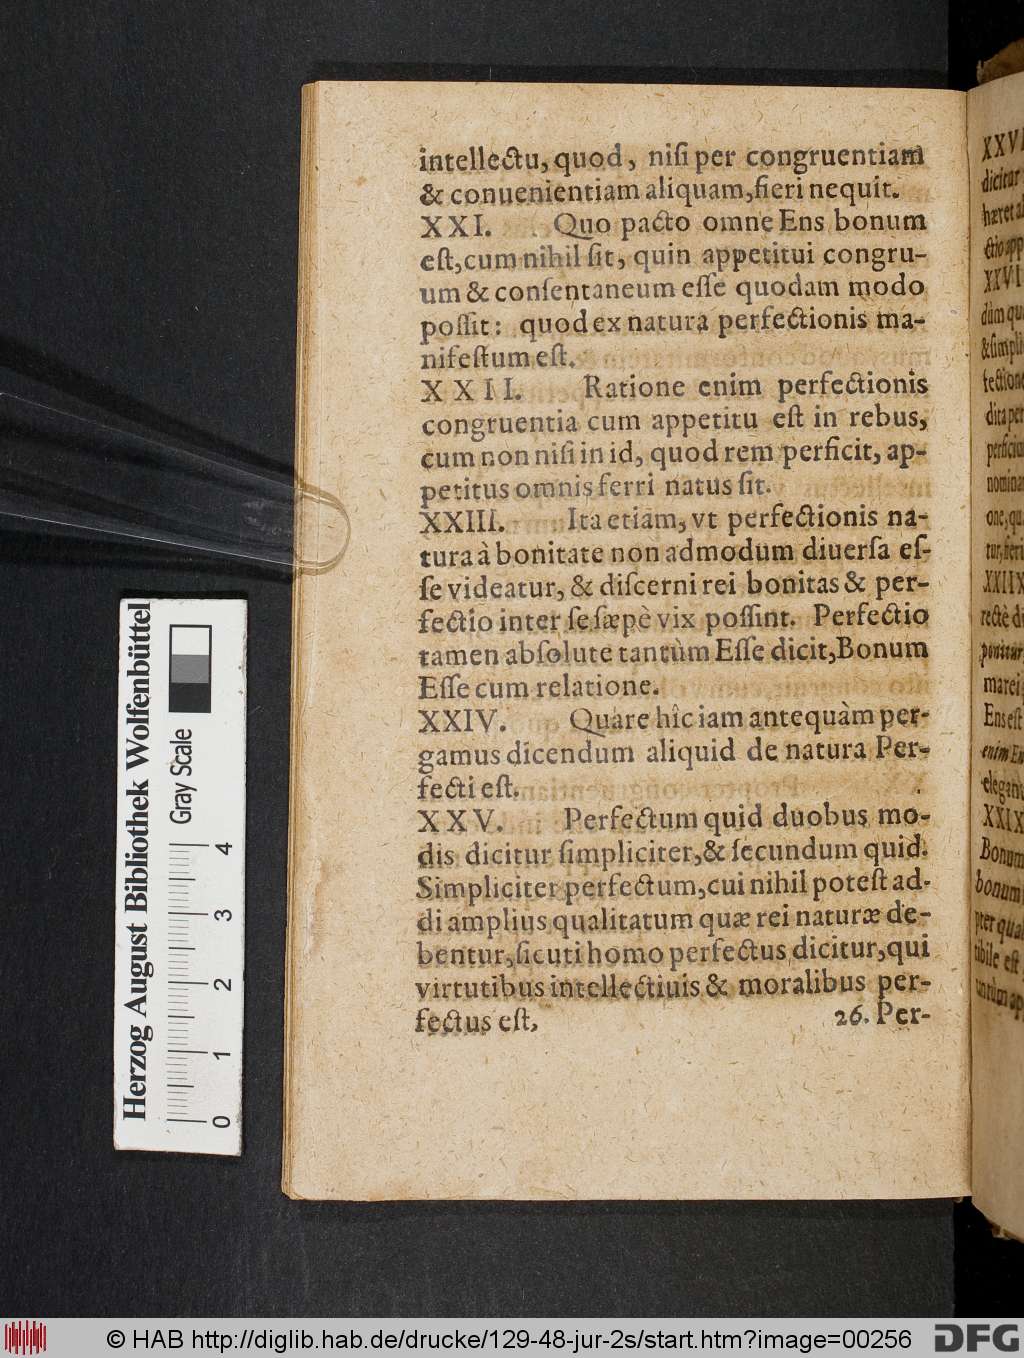 intellectu, quod, niſi per congruentiam
& conuenientiam aliquam, fieri nequit.
XXI. Quo pacto omne Ens bonum
eſt, cum nihil ſit, quin appetitui congru-
um & conſentaneum eſſe quodam modo
poſſit: quod ex natura perfectionis ma-
nifeſtum eſt.
XXII. Ratione enim perfectionis
congruentia cum appetitu eſt in rebus,
cum non niſi in id, quod rem perficit, ap-
petitus omnis ferri natus ſit.
XXIII. Ita etiam, vt perfectionis na-
tura à bonitate non admodum diuerſa eſ-
ſe videatur, & diſcerni rei bonitas & per-
fectio inter ſe ſæpè vix poſſint. Perfectio
tamen abſolute tantùm Eſſe dicit, Bonum
Eſſe cum relatione.
XXIV. Quare hîc iam antequàm per-
gamus dicendum aliquid de natura Per-
fecti eſt.
XXV. Perfectum quid duobus mo-
dis dicitur ſimpliciter, & ſecundum quid.
Simpliciter perfectum, cui nihil poteſt ad-
di amplius qualitatum quæ rei naturæ de-
bentur, ſicuti homo perfectus dicitur, qui
virtutibus intellectiuis & moralibus per-
fectus eſt,
26. Per-
XXVI
dicitur
hæret a
ctio app
XXVI
dùm qu
& ſimpli
fectione
dita per
perficiu
nomina
one, qu
tur, fieri
XXIIX
rectè di
ponitur
marei
Ens eſt
enim En
elegan
XXIX
Bonum
bonum
pter qua
tibile eſt
Herzog August Bibliothek Wolfenbüttel
Gray Scale
0 1 2 3 4
© HAB http://diglib.hab.de/drucke/129-48-jur-2s/start.htm?image=00256
DFG